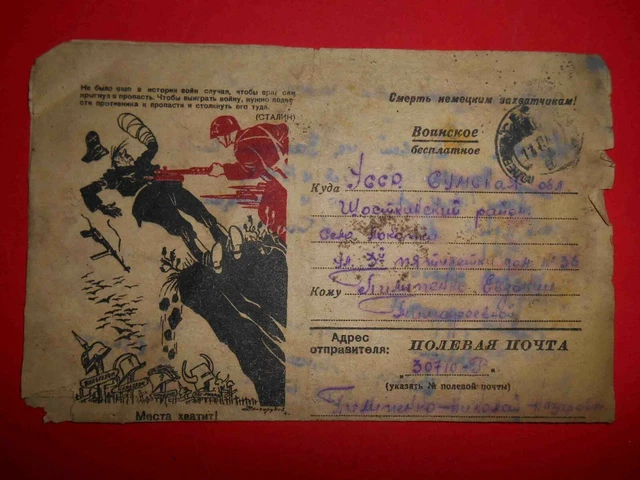 Не было еще в истории войн случая, чтобы враг сам
прыгнул в пропасть. Чтобы выиграть войну, нужно подве
сти противника к пропасти и столкнуть его туда.
(СТАЛИН)
Места хватит!
Смерть немецким захватчикам!
Воинское
бесплатное
Куда УССР Сумская обл
Шосткивский район
Село
дом № 36
Кому Пилипенко Евдокии
Адрес
отправителя: ПОЛЕВАЯ ПОЧТА
30710-Р
(указать № полевой почты)
Пилипенко Николай